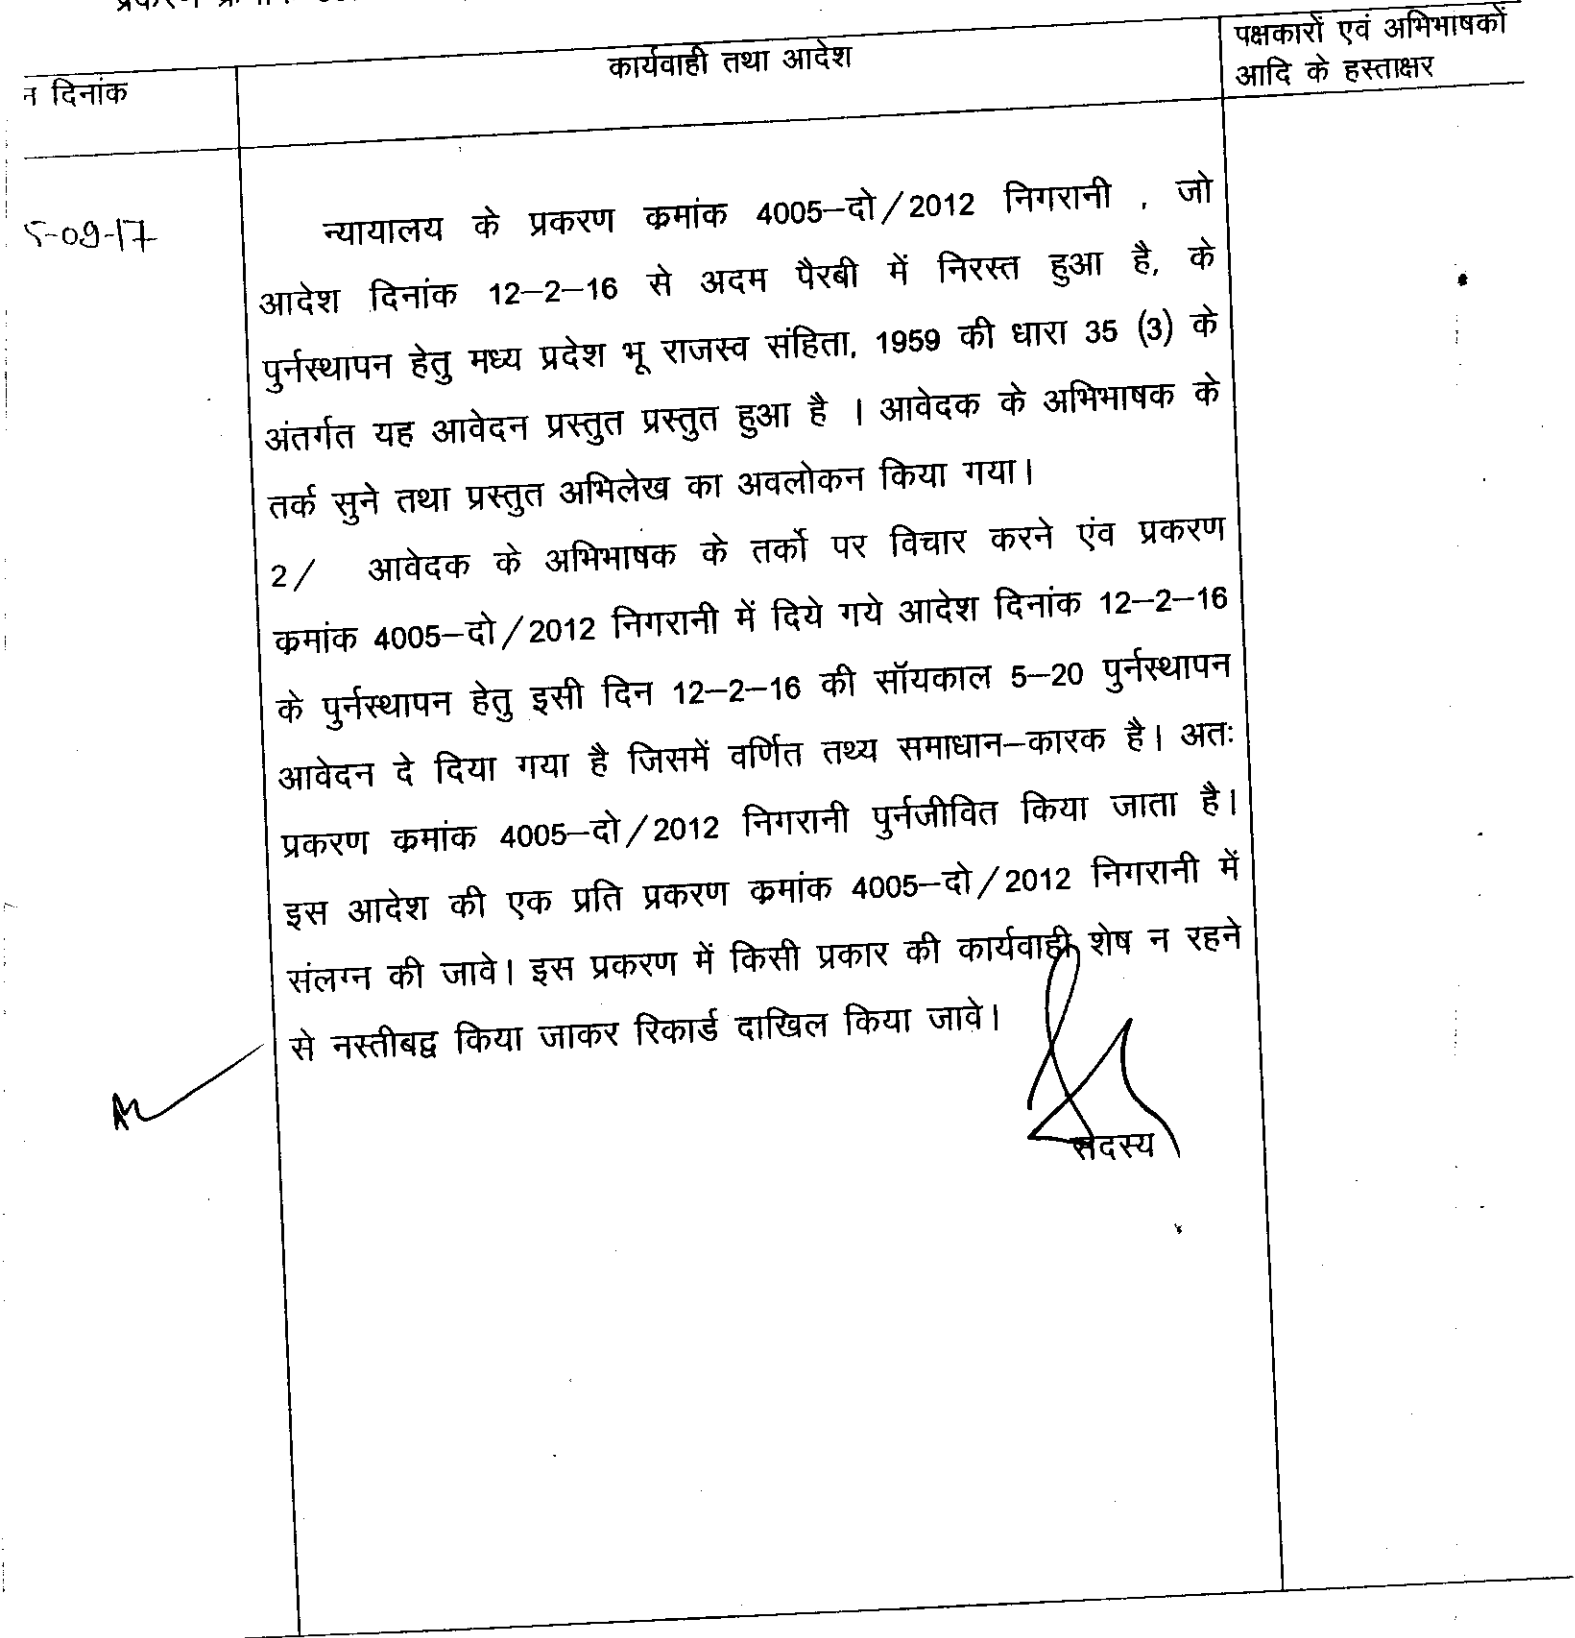 पक्षकारों एवं अभिभाषकों
आदि के हस्ताक्षर
कार्यवाही तथा आदेश
दिनांक
5-09-17
न्यायालय के प्रकरण क्रमांक 4005–दो/2012 निगरानी , जो
आदेश दिनांक 12–2–16 से अदम पैरबी में निरस्त हुआ है, के
पुर्नस्थापन हेतु मध्य प्रदेश भू राजस्व संहिता, 1959 की धारा 35 (3) के
अंतर्गत यह आवेदन प्रस्तुत प्रस्तुत हुआ है । आवेदक के अभिभाषक के
तर्क सुने तथा प्रस्तुत अभिलेख का अवलोकन किया गया।
2/ आवेदक के अभिभाषक के तर्को पर विचार करने एंव प्रकरण
क्रमांक 4005–दो/2012 निगरानी में दिये गये आदेश दिनांक 12–2–16
के पुर्नस्थापन हेतु इसी दिन 12–2–16 की सॉयकाल 5–20 पुर्नस्थापन
आवेदन दे दिया गया है जिसमें वर्णित तथ्य समाधान–कारक है। अतः
प्रकरण क्रमांक 4005–दो/2012 निगरानी पुर्नजीवित किया जाता है।
इस आदेश की एक प्रति प्रकरण क्रमांक 4005–दो/2012 निगरानी में
संलग्न की जावे। इस प्रकरण में किसी प्रकार की कार्यवाही शेष न रहने
से नस्तीबद्व किया जाकर रिकार्ड दाखिल किया जावे।
सदस्य